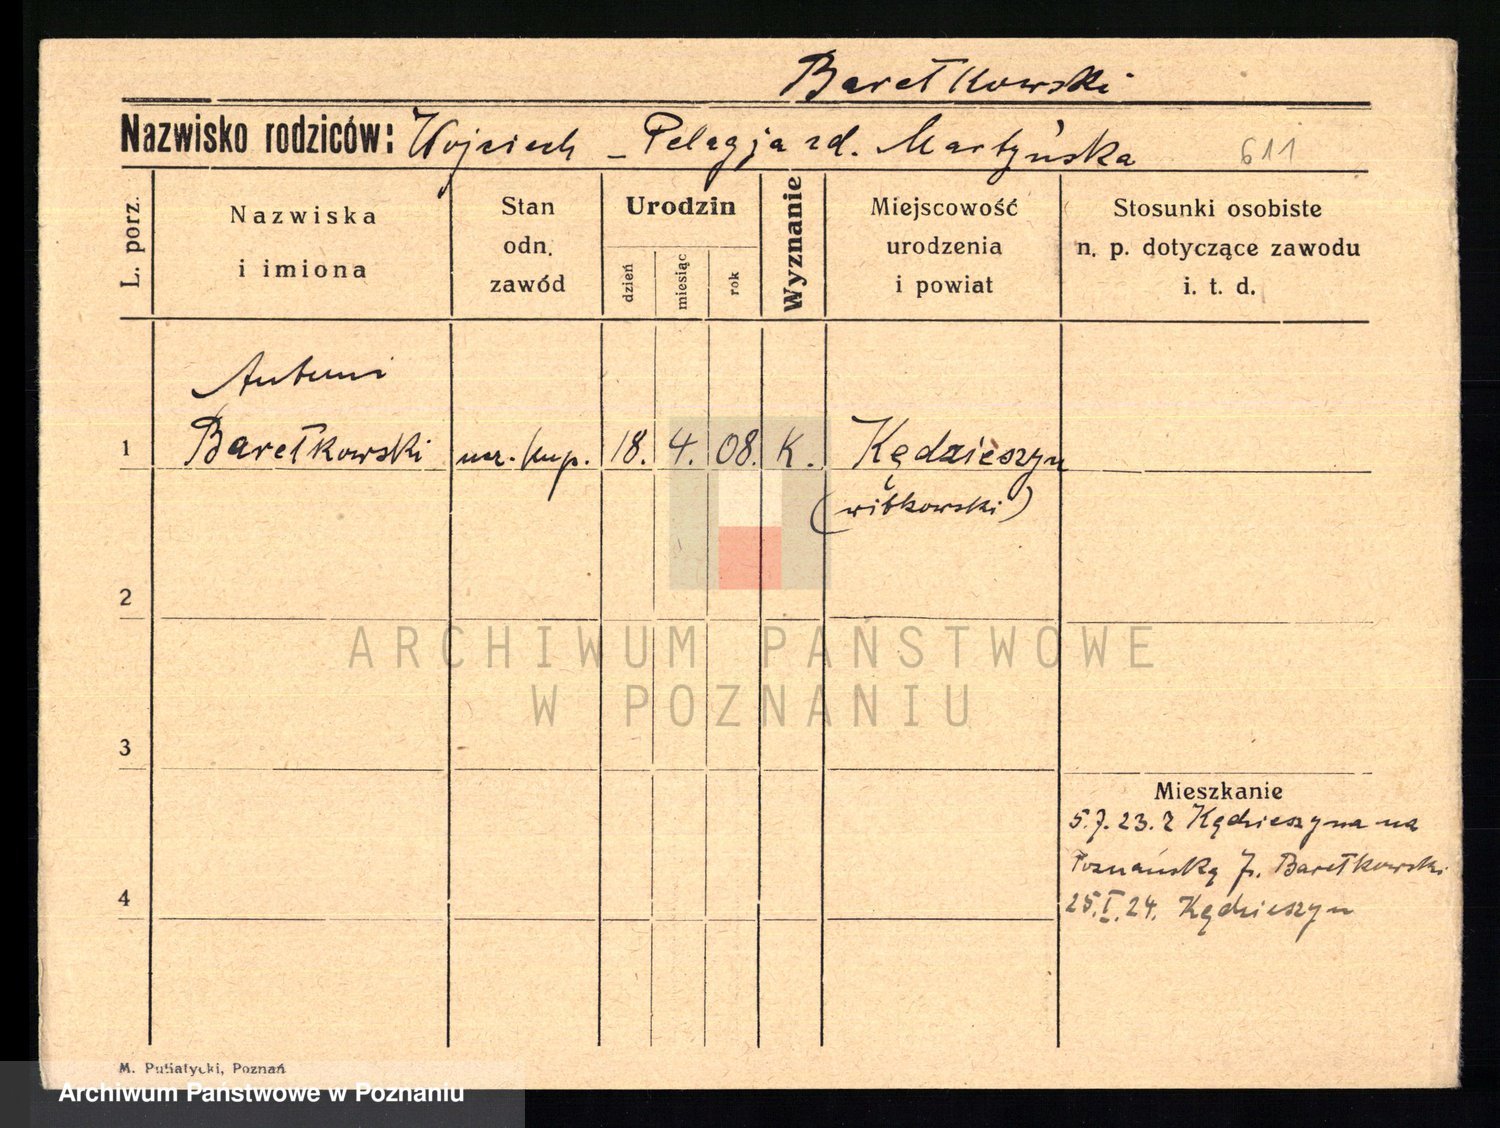 Barełkowski
Nazwisko rodziców: Wojciech – Pelagja zd. Martyńska 611
L. porz.
Nazwiska
i imiona
Stan
odn.
zawód
Urodzin
dzień
miesiąc
rok
Wyznanie
Miejscowość
urodzenia
i powiat
Stosunki osobiste
n. p. dotyczące zawodu
i. t. d.
Antoni
1 Barełkowski ucz. kup. 18. 4. 08. K. Kędzieszyn
(witkowski)
2
3
4
Mieszkanie
5.7.23. z Kędzieszyna na
Poznańską p. Barełkowski
25.I.24. Kędzieszyn
ARCHIWUM PAŃSTWOWE
W POZNANIU
M. Putiatycki, Poznań
Archiwum Państwowe w Poznaniu